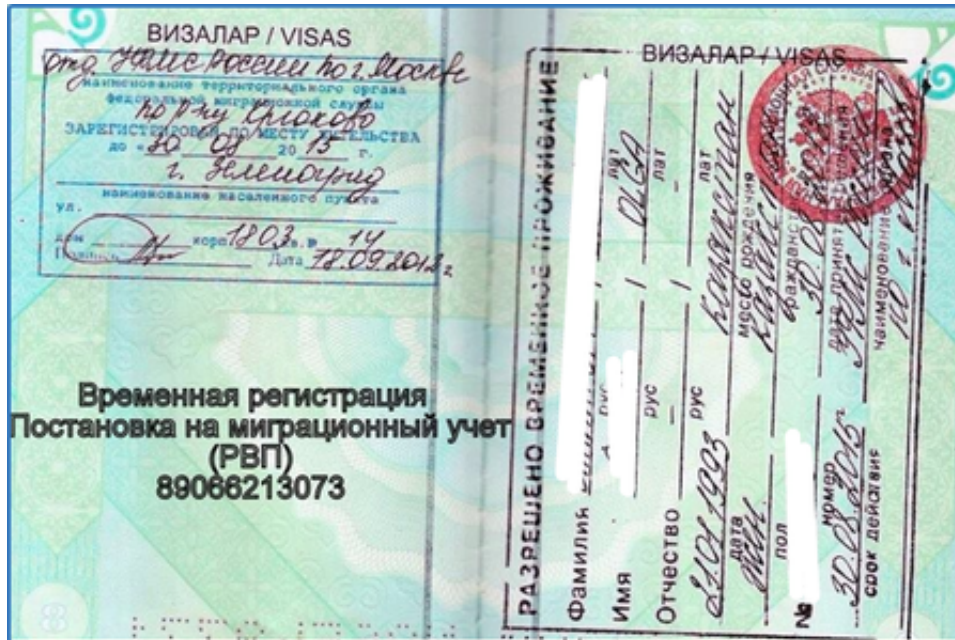 ВИЗАЛАР / VISAS
отд. УФМС России по г. Москве
наименование территориального органа
федеральной миграционной службы
по р-ну Крюково
ЗАРЕГИСТРИРОВАН ПО МЕСТУ ЖИТЕЛЬСТВА
до «30 08 2015 г.
г. Зеленоград
наименование населенного пункта
ул.
дом корп 1803 кв. № 14
Подпись Дата 18.09.2012 г
Временная регистрация
Постановка на миграционный учет
(РВП)
89066213073
ВИЗАЛАР / VISAS
РАЗРЕШЕНО ВРЕМЕННОЕ ПРОЖИВАНИЕ
Фамилия / лат
рус
Имя / OLGA
рус лат
Отчество – / –
рус лат
21.01.1993 Казахстан
дата место рождения
жен. Казахстан
пол гражданство
№ 30.08
номер дата принятия
30.08.2015 УФМС
срок действия наименование органа
по г.